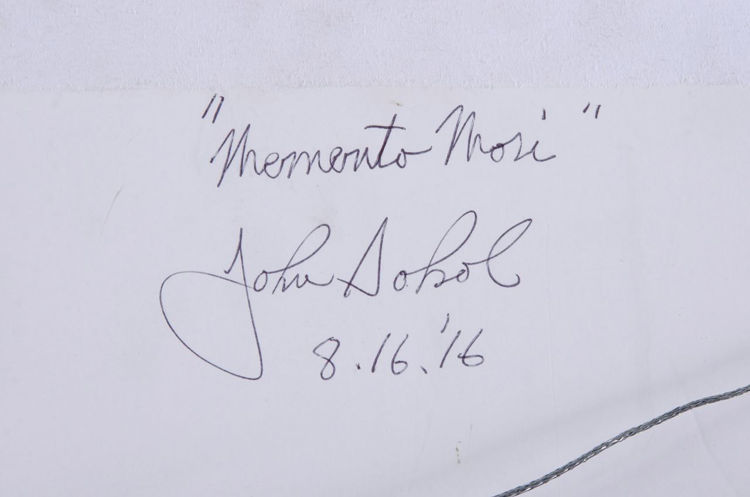 "Memento Mori"
John Sokol
8.16.'16